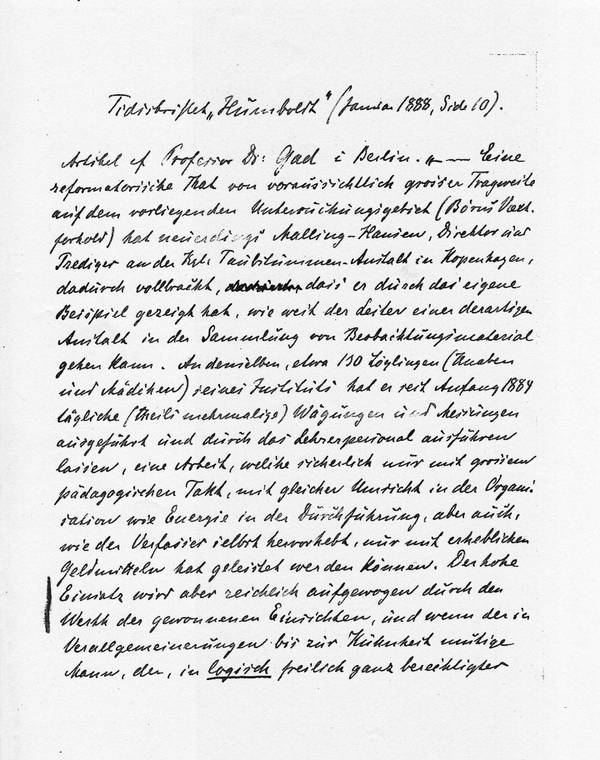 Tidsskriftet „Humboldt" (Januar 1888, Side 10).
Artikel af Professor Dr: Gad i Berlin. „— — Eine
reformatorische That von voraussichtlich grosser Tragweite
auf dem vorliegenden Untersuchungsgebiet (Börns Væxt-
forhold) hat neuerdings Malling-Hansen, Direktor und
Prediger an der Kgl. Taubstummen-Anstalt in Kopenhagen,
dadurch vollbracht, dass er durch das eigene
Beispiel gezeigt hat, wie weit der Leiter einer derartigen
Anstalt in der Sammlung von Beobachtungsmaterial
gehen kann. An denselben, etwa 130 Zöglingen (Knaben
und Mädchen) seines Instituts hat er seit Anfang 1884
tägliche (theils mehrmalige) Wägungen und Messungen
ausgeführt und durch das Lehrerpersonal ausführen
lassen, eine Arbeit, welche sicherlich nur mit grossem
pädagogischen Takt, mit gleicher Umsicht in der Organi-
sation wie Energie in der Durchführung, aber auch,
wie der Verfasser selbst hervorhebt, nur mit erheblichen
Geldmitteln hat geleistet werden können. Der hohe
Einsatz wird aber reichlich aufgewogen durch den
Werth der gewonnenen Einsichten, und wenn der in
Verallgemeinerungen bis zur Kühnheit mutige
Mann, der, in logisch freilich ganz berechtigter